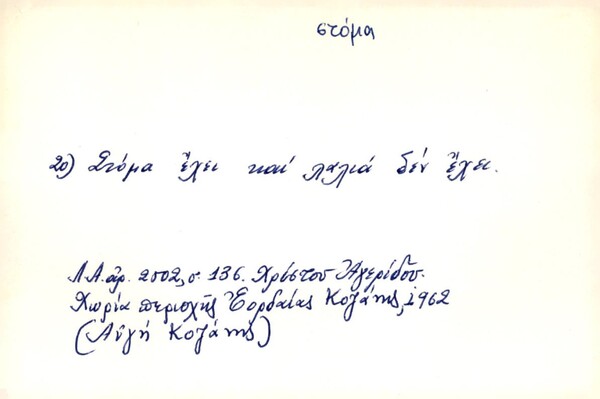 στόμα
20) Στόμα ἔχει καί λαλιά δέν ἔχει.
Λ.Α. ἀρ. 2002, σ. 136. Χρίστου Ἀγερίδου.
Χωρία περιοχῆς Ἑορδαίας Κοζάνης, 1962
(Αὐγή Κοζάνης)